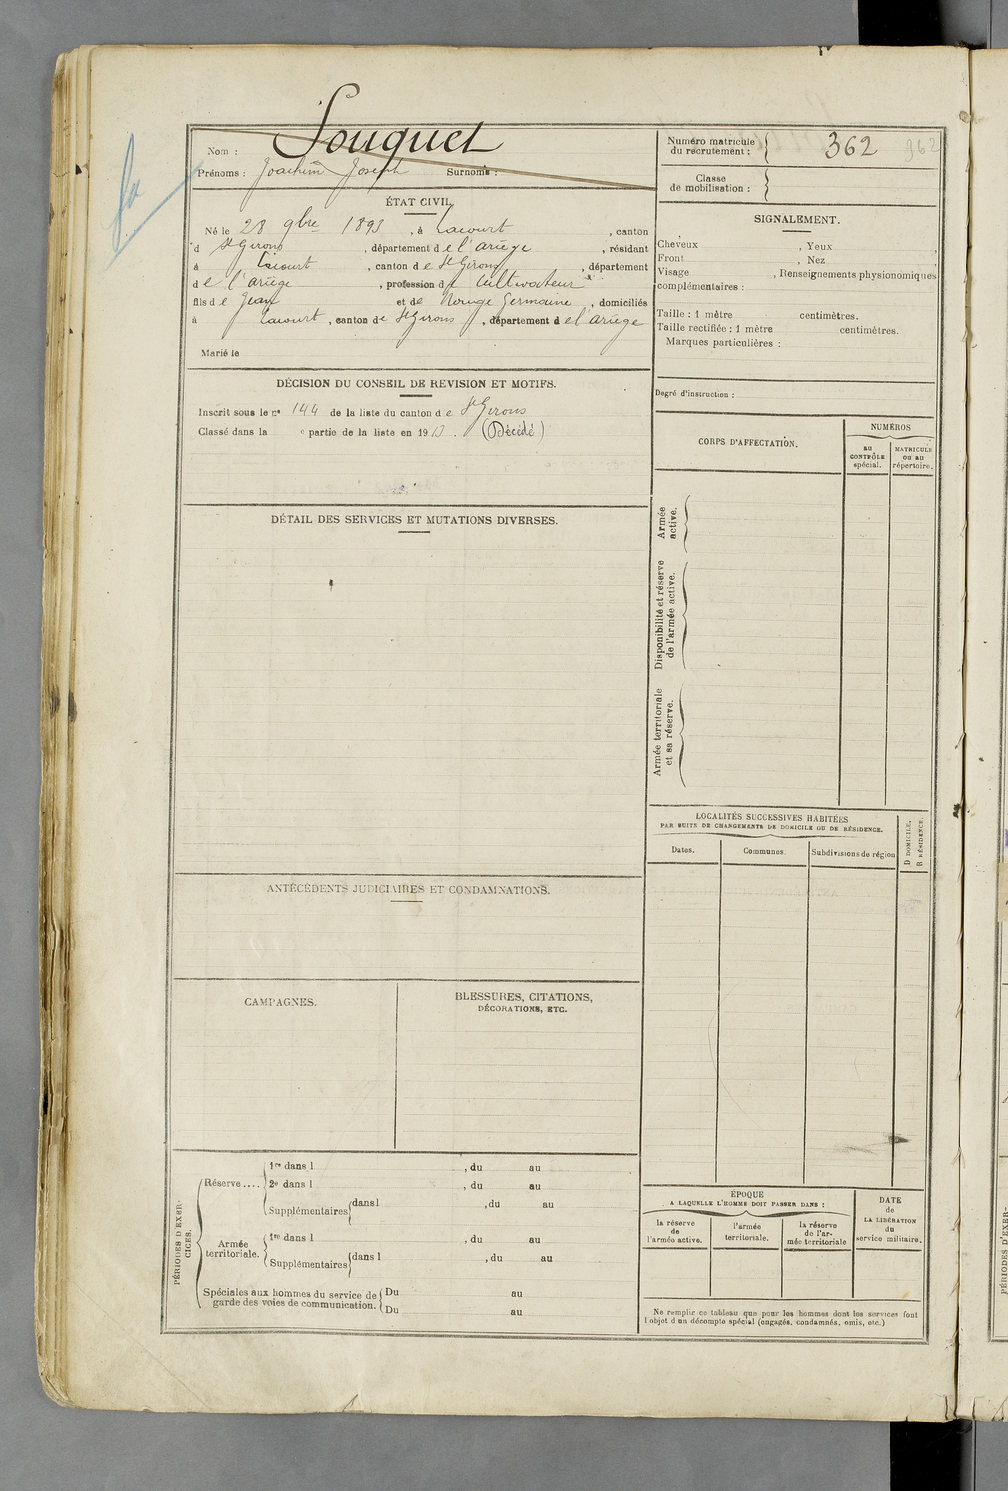 Nom : Souquet
Prénoms : Joachim Joseph Surnoms :
ÉTAT CIVIL
Né le 28 9bre 1893, à Lacourt, canton
d St Girons, département de l'ariège, résidant
à Lacourt, canton de St Girons, département
de l'ariège, profession de Cultivateur
fils de Jean et de Rouge Germaine, domiciliés
à Lacourt, canton de St Girons, département de l'ariège
Marié le
DÉCISION DU CONSEIL DE REVISION ET MOTIFS.
Inscrit sous le no 144 de la liste du canton de St Girons
Classé dans la e partie de la liste en 1913. (Décédé)
DÉTAIL DES SERVICES ET MUTATIONS DIVERSES.
ANTÉCÉDENTS JUDICIAIRES ET CONDAMNATIONS.
CAMPAGNES.
BLESSURES, CITATIONS,
DÉCORATIONS, ETC.
PÉRIODES D'EXER-
CICES.
Réserve....
1re dans l , du au
2e dans l , du au
Supplémentaires dans l , du au
Armée
territoriale.
1re dans l , du au
Supplémentaires dans l , du au
Spéciales aux hommes du service de
garde des voies de communication.
Du au
Du au
Numéro matricule
du recrutement : 362 362
Classe
de mobilisation :
SIGNALEMENT.
Cheveux , Yeux ,
Front , Nez
Visage , Renseignements physionomiques
complémentaires :
Taille : 1 mètre centimètres.
Taille rectifiée : 1 mètre centimètres.
Marques particulières :
Degré d'instruction :
CORPS D'AFFECTATION.
NUMÉROS
au
CONTRÔLE
spécial.
MATRICULE
OU AU
répertoire.
Armée
active.
Disponibilité et réserve
de l'armée active.
Armée territoriale
et sa réserve.
LOCALITÉS SUCCESSIVES HABITÉES
PAR SUITE DE CHANGEMENTS DE DOMICILE OU DE RÉSIDENCE.
Dates.
Communes.
Subdivisions de région
D DOMICILE,
R RÉSIDENCE.
ÉPOQUE
A LAQUELLE L'HOMME DOIT PASSER DANS :
la réserve
de
l'armée active.
l'armée
territoriale.
la réserve
de l'ar-
mée territoriale
DATE
de
LA LIBÉRATION
du
service militaire.
Ne remplir ce tableau que pour les hommes dont les services font
l'objet d'un décompte spécial (engagés, condamnés, omis, etc.)
PÉRIODES D'EXER-